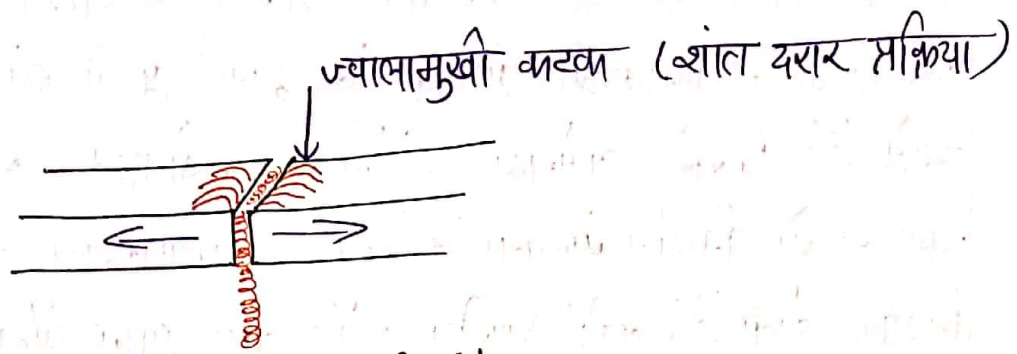 ज्वालामुखी कटक (शांत दरार प्रक्रिया)